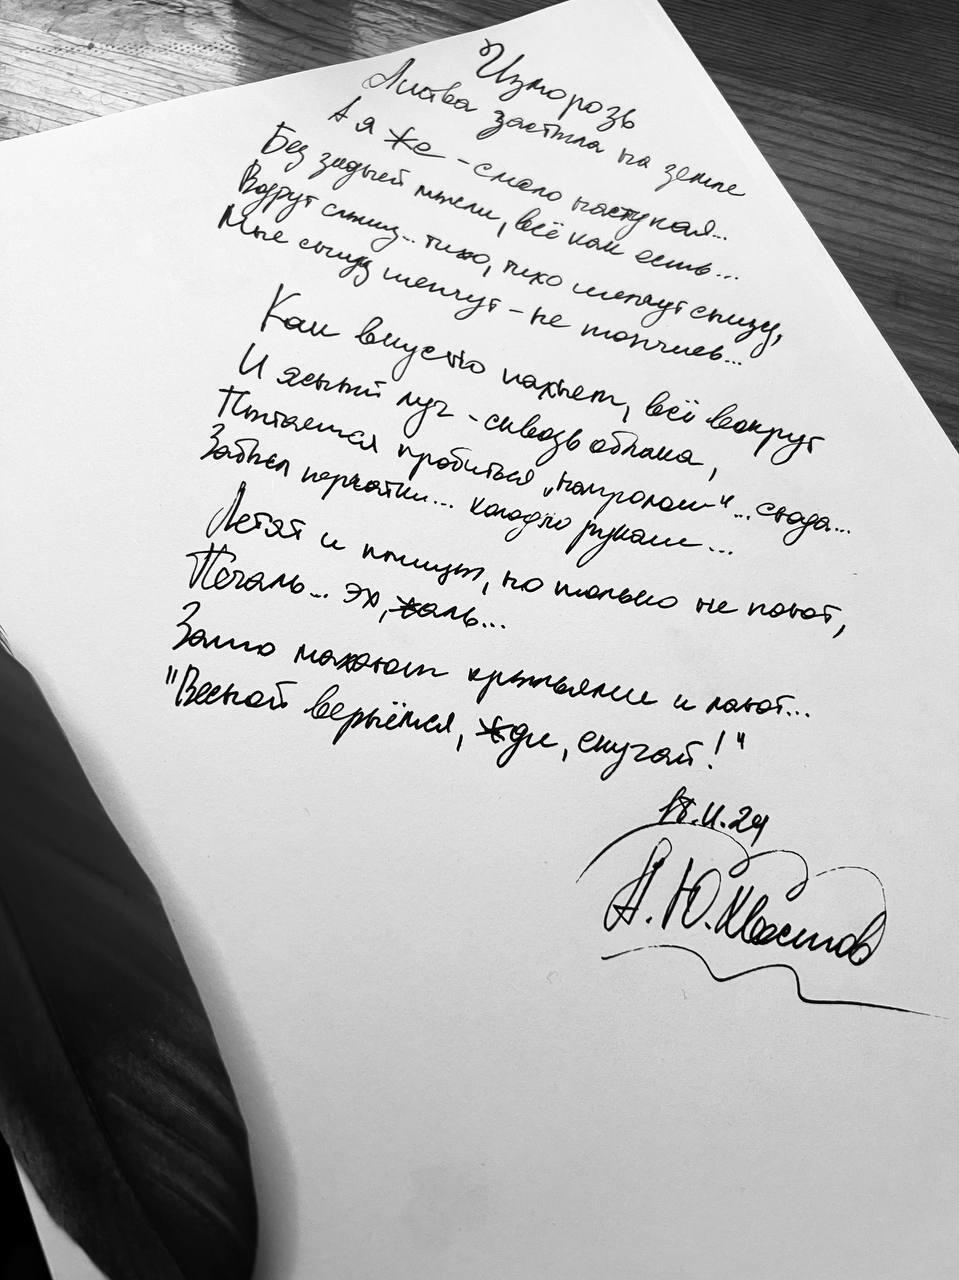 Изморозь
Листва застыла на земле
А я же - смело наступая...
Без задней мысли, всё как есть...
Вдруг слышу... тихо, тихо шепчут снизу,
Мне снизу шепчут - не топчись...
Как вкусно пахнет, всё вокруг
И ясный луч - сквозь облака,
Пытается пробиться „напролом"... сюда...
Забыл перчатки... холодно рукам...
Летят и пищат, но только не поют,
Печаль... эх, жаль...
Зато махают крыльями и поют...
"Весной вернёмся, жди, скучай!"
18.11.24
А. Ю. Хвостов